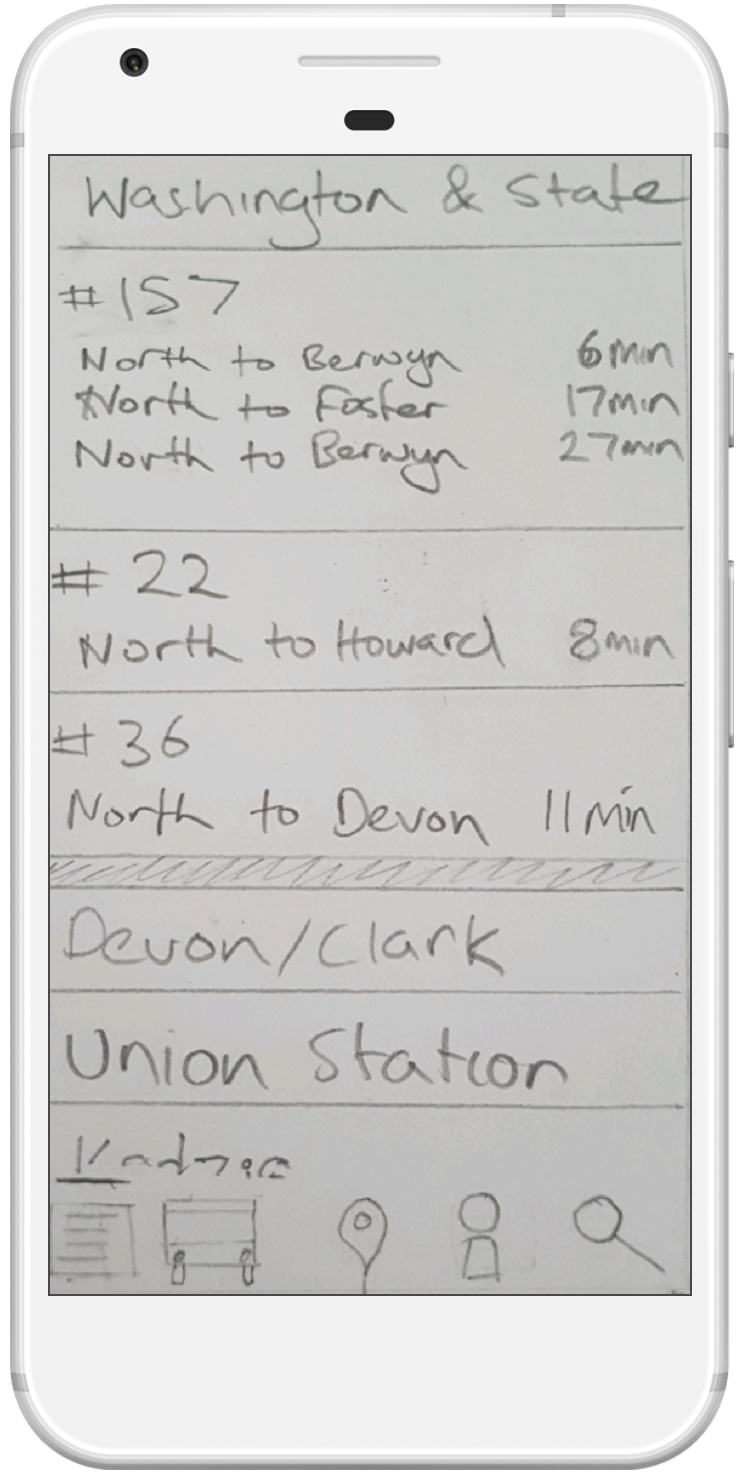 Washington & State
#157
North to Berwyn 6min
North to Foster 17min
North to Berwyn 27min
# 22
North to Howard 8min
# 36
North to Devon 11 Min
Devon/Clark
Union Station